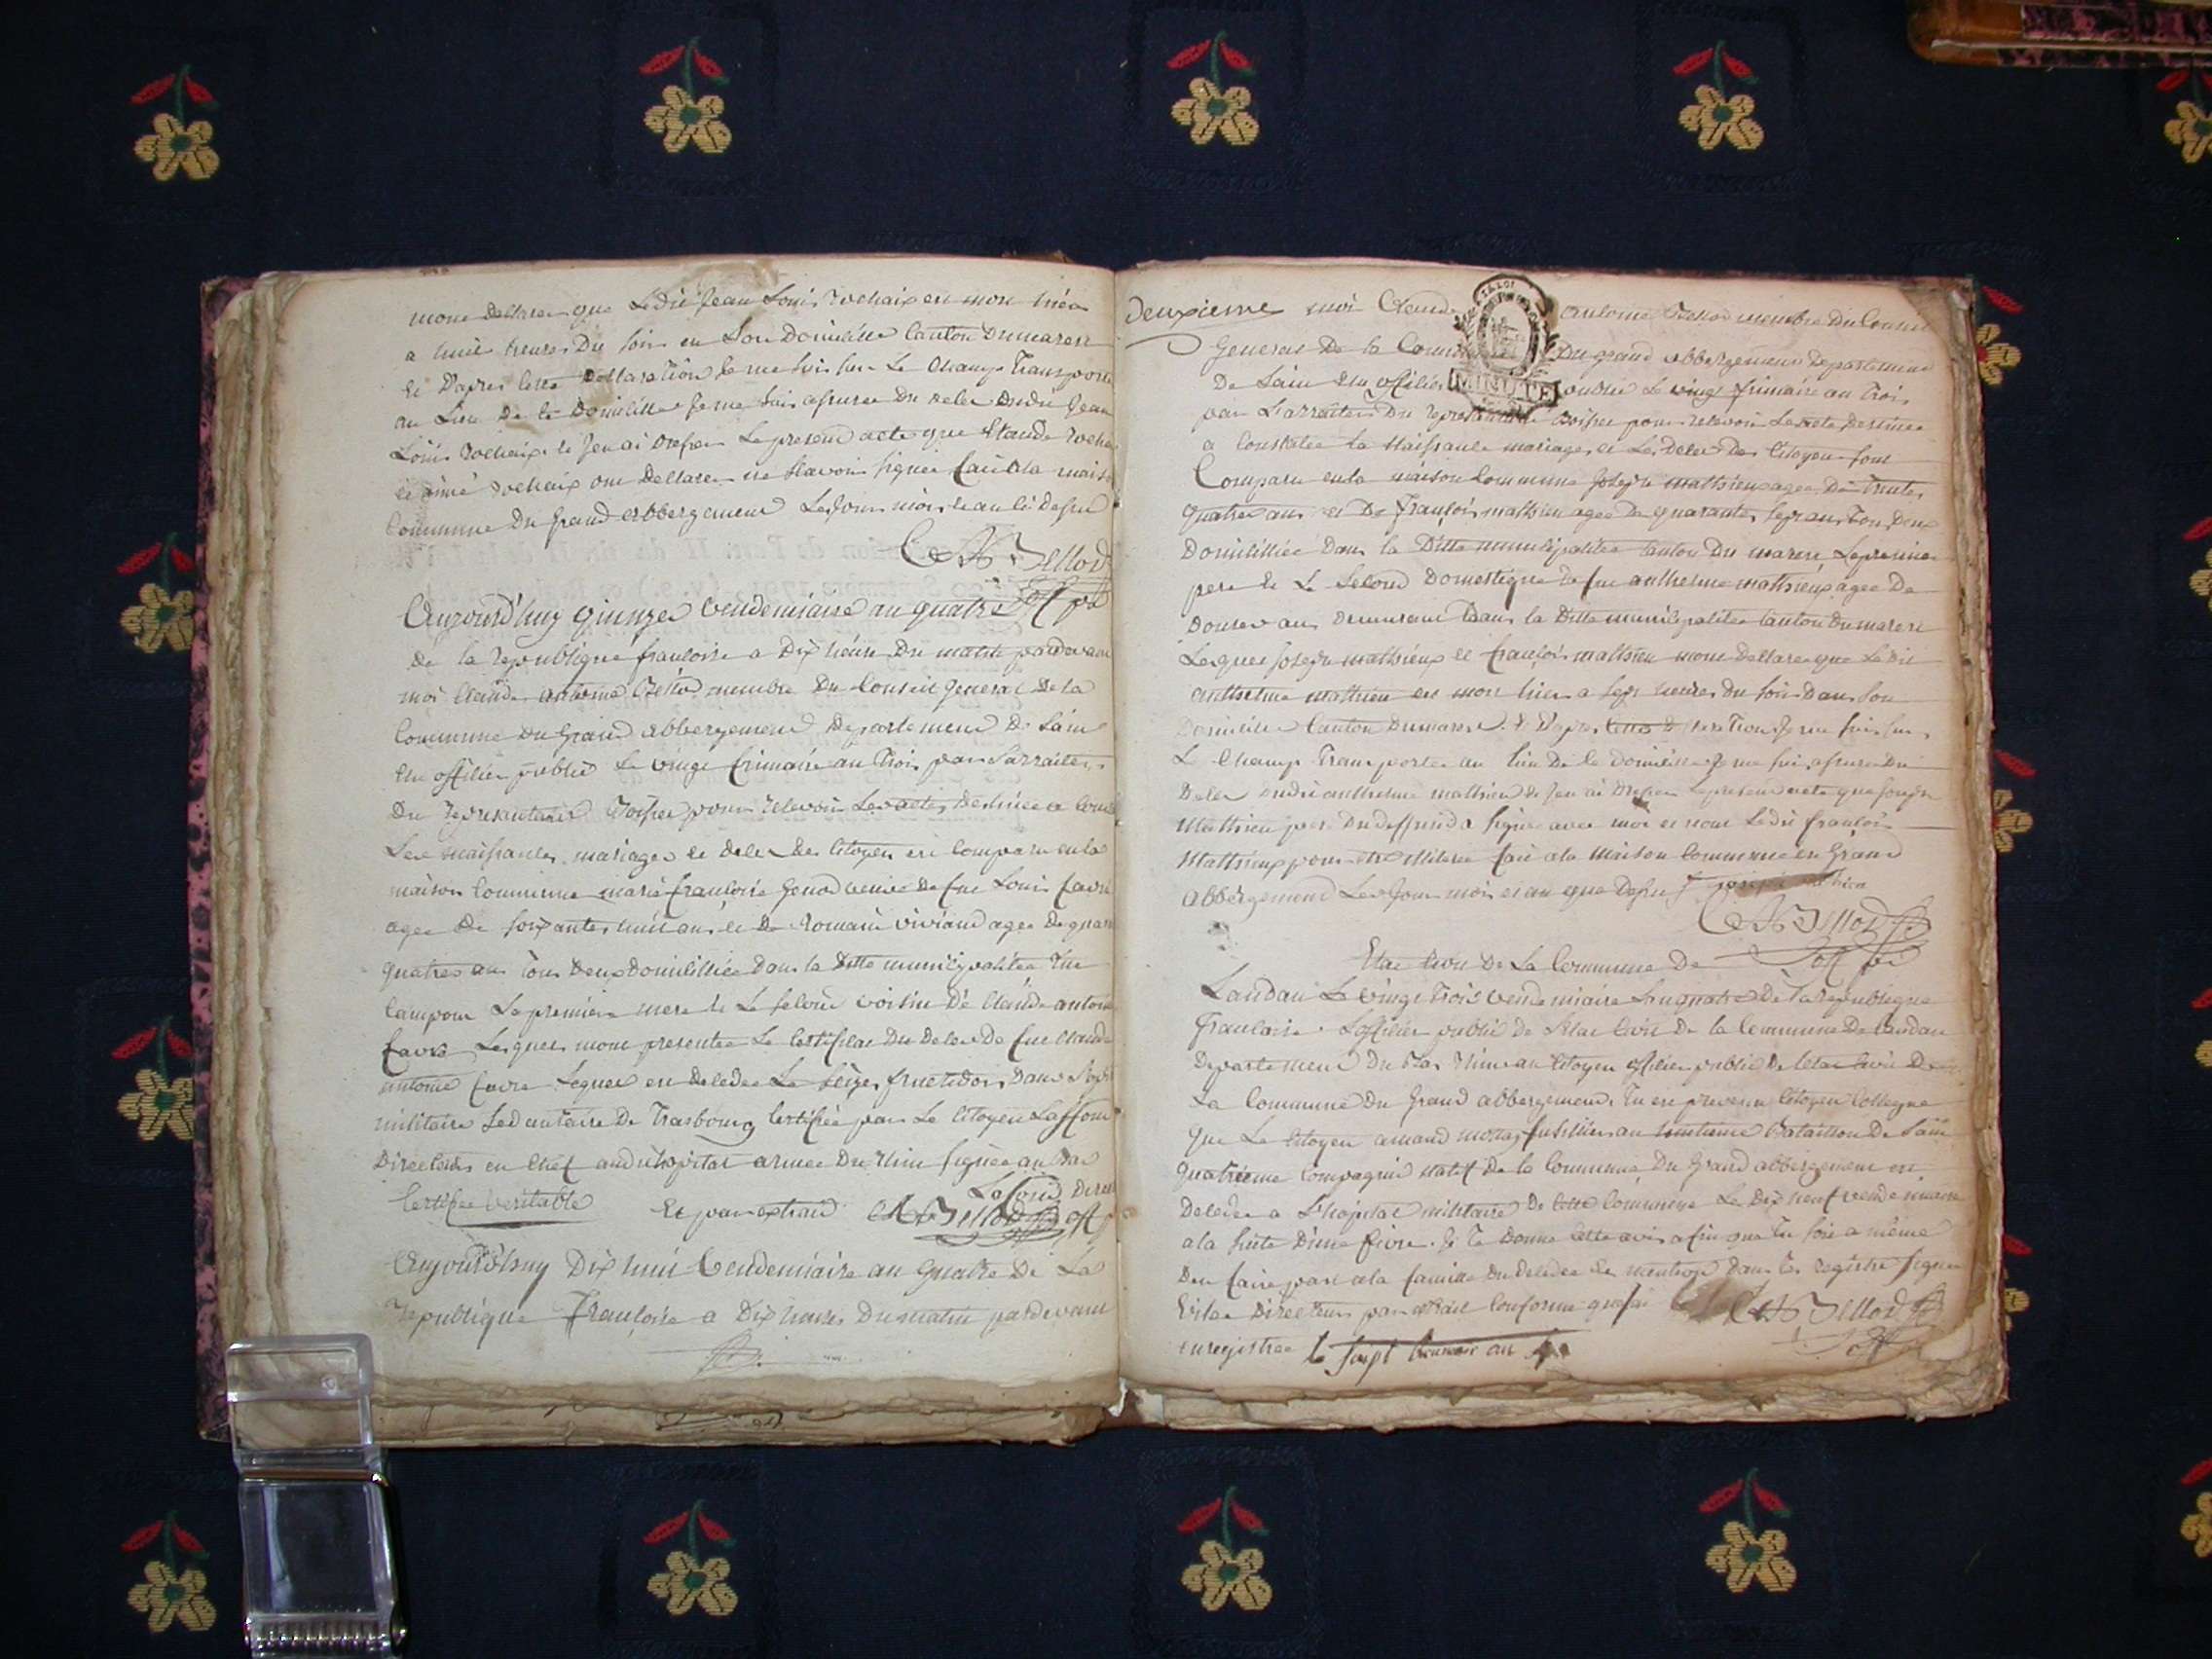 mont declarer que Ledit Jean Louis Rochaix est mort hier
a huit heures Du soir en son Domicille Canton Dumarest
Et D'apres cette Declaration Je me suis sur Le champ Transporté
au Lieu De le Domicille Je me suis assurer Du deler dudit Jean
Louis Rochaix & Jen ai Dressée Le present acte que Claude Roch
et aimé Rochaix ont Declarer ne scavoir signer fait a la maiso
Commune Du Grand abbergement Les jour mois & an ci Dessu
CA Bellod
off p
Aujourd'huy quinze vendemiaire an quatre
de la republique francoise a Dix heure Du matin pardevant
moi Claude antoine Bellod membre Du Conseil General De la
Commune Du Grand abbergement Departement De Lain
Elu officier public Le vingt frimaire an Trois par Larraiter
Du representant Boisset pour recevoir Les actes Destinée a Const
Les naissantes mariages et deler Des Citoyen est Comparu enla
maison Commune marie francoise Genod veuve De feu Louis favre
agee De soixantes huit ans et De Romain viviand agee De quara
quatres ans Tous Deux Domicilliée Dans la Ditte municipalitée Rue
Lampour La premiere mere & Le second voisin De Claude antoine
favre Lesquel mont presentée Le Certificat Du Deler De feu Claude
antoine favre Lequel est Deledee Le seize fructidor Dans L'opit
militaire Sedentaire De Trasbourg Certifiée par Le Citoyen Laffont
Directeur en Chef audit hopital armée Du Rhin signée au bas
Lafont Direct
Certifiee veritable Et par extrait CA Bellod off
Aujourd'huy Dix huit Vendemiaire an quatre De La
republique Francoise a Dix heures Du matin pardevant
Deuxieme moi Claude antoine Bellod membre Du Conseil
General De la Commune Du grand abbergement Departement
De Lain Elu officier MINUTE public Le vingt frimaire an Trois
par Larraiter Du representant Boisset pour recevoir Les acte Destinee
a Constatee La Naissance mariages et Les Deler Des Citoyen sont
Comparu enla maison Commune Joseph mathieu agee De Trentes
quatres ans et De François mathieu agee De quarantes sept ans Tous Deux
Domicilliée Dans la Ditte municipalitée Canton Du marest Le premier
pere & Le Second Domestique De feu anthelme mathieu agee De
Douse ans demeurant Dans la Ditte municipalitée Canton Dumarest
Lesquel Joseph mathieux et françois mathieu mont Declarer que Ledit
anthelme mathieu est mort hier a sept heures Du soir Dans son
Domicille Canton Dumarest & D'apres Cette Declaration Je me suis sur
Le Champ Transportee au Lieu De le Domicille Je me suis assurer Du
Deler Dudit anthelme mathieu & Jen ai Dressée Le present acte que Joseph
Mathieu pere Du deffund a signé avec moi et non Ledit francois
Mathieux pour etre illiteree fait a la Maison Commune en Grand
abbergement Les Jour mois et an que Dessus Joseph Mathieu
CA Bellod
off pu
Etat Civil De La Commune De
Landau Le vingt Trois vendemiaire Lan quatre De la republique
francaise. Lofficier public De Letat Civil De la Commune De Landau
Departement Du bas Rhin au Citoyen officier public De Letat Civil De
La Commune Du Grand abbergement Tu est prevenu Citoyen Collegue
que Le Citoyen armand fusillier au huitieme Bataillon De Lain
quatrieme Compagnie natif De la Commune Du Grand abbergement est
Deledee a L'hopital militaire De Cette Commune Le Dix neuf vendemiaire
a la suite D'une fievre. Je Te Donne Cette avis afin que Tu soie a même
Den faire part a la famille Du deledee et mention Dans Les registre signée
Directeur par extrait Conforme CA Bellod
off
enregistrée Le